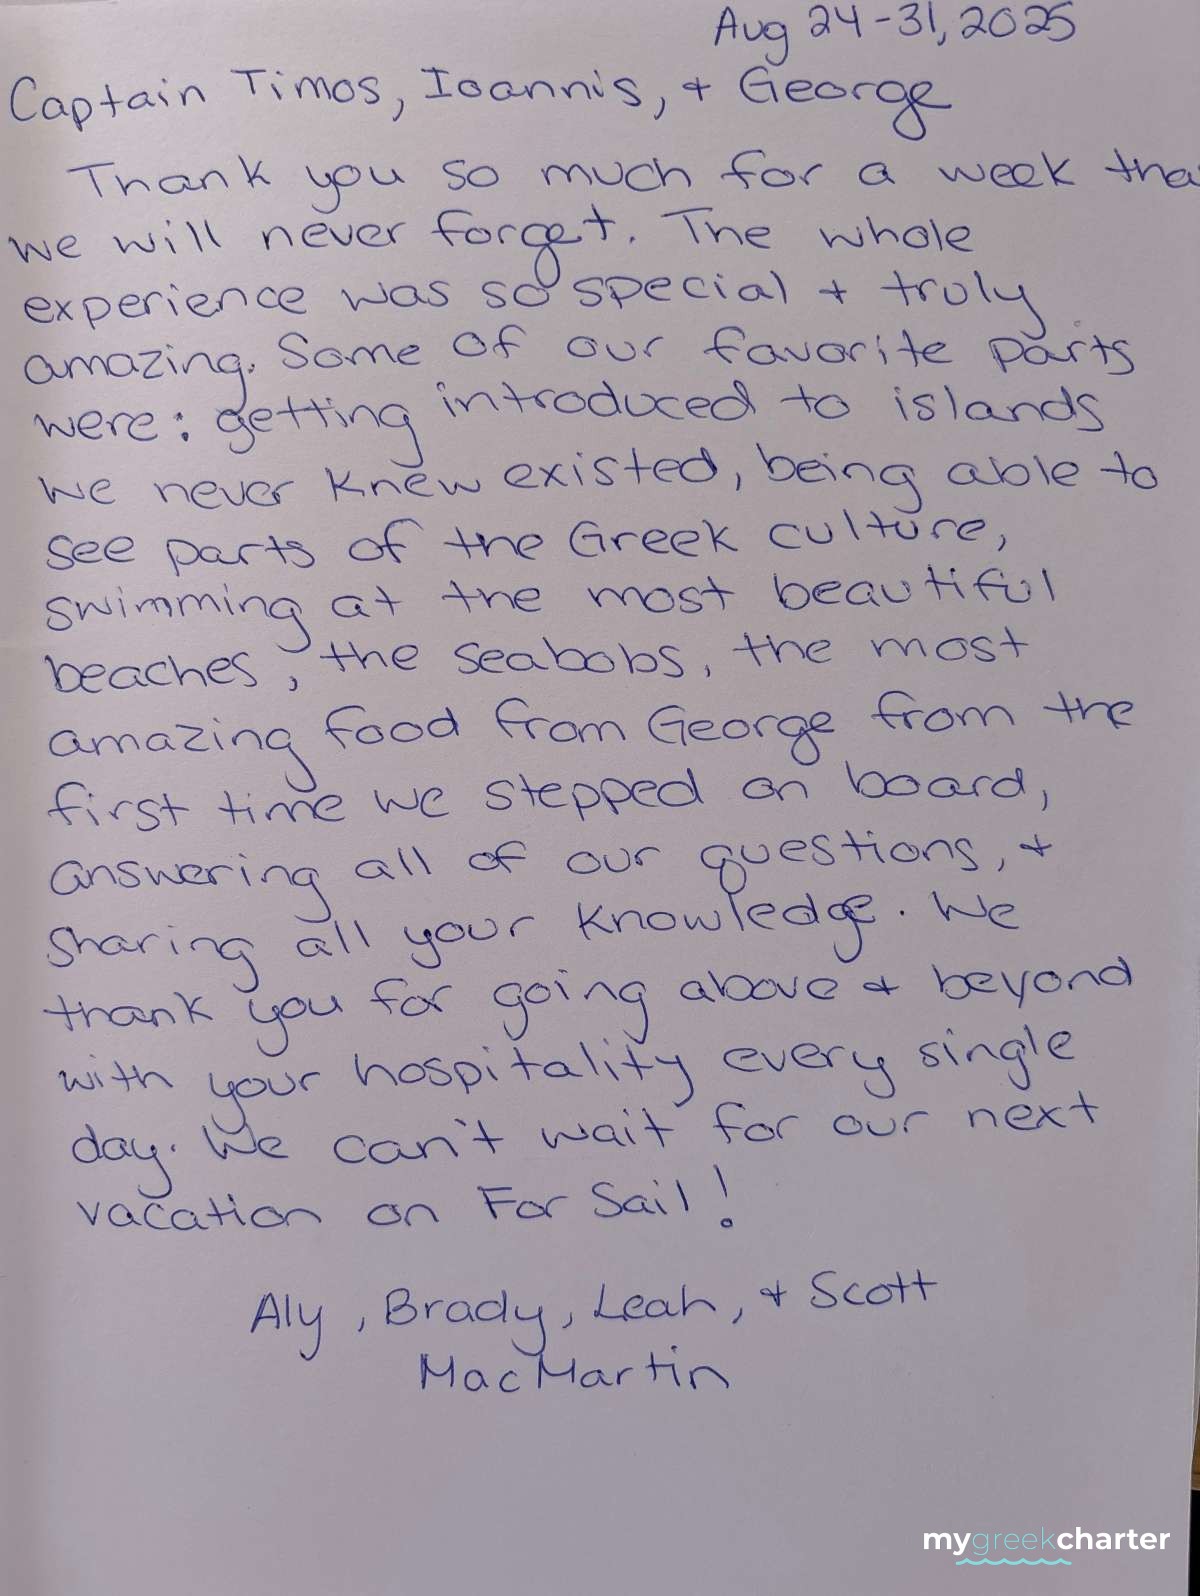 Aug 24-31, 2025
Captain Timos, Ioannis, + George
Thank you so much for a week tha
we will never forget. The whole
experience was so special + truly
amazing. Some of our favorite parts
were: getting introduced to islands
we never knew existed, being able to
see parts of the Greek culture,
swimming at the most beautiful
beaches, the seabobs, the most
amazing food from George from the
first time we stepped on board,
answering all of our questions, +
sharing all your knowledge. We
thank you for going above + beyond
with your hospitality every single
day. We can't wait for our next
vacation on For Sail!
Aly, Brady, Leah, + Scott
MacMartin
mygreekcharter